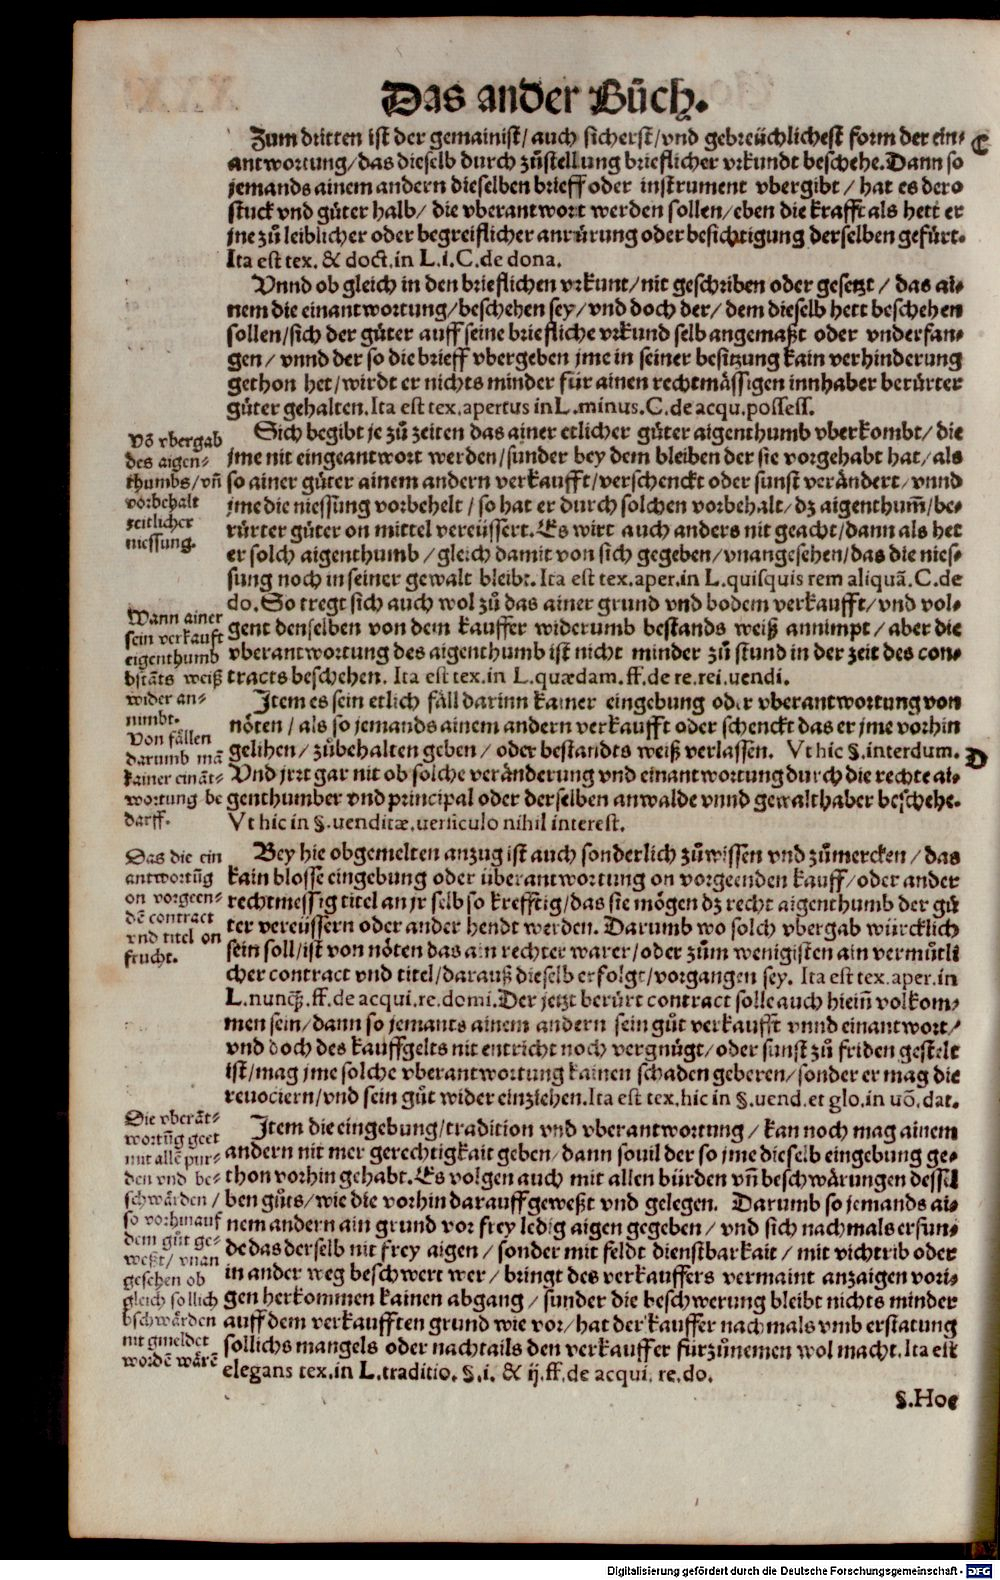 Das ander Bůch.
Zum dritten ist der gemainist/ auch sicherst/ vnd gebreüchlichest form der ein-
antwortung/ das dieselb durch zůstellung brieflicher vrkundt beschehe. Dann so
jemands ainem andern dieselben brieff oder instrument vbergibt / hat es dero
stuck vnd güter halb/ die vberantwort werden sollen/ eben die krafft als hett er
jne zů leiblicher oder begreiflicher anrürung oder besichtigung derselben gefürt.
Ita est tex. & doct. in L. i. C. de dona.
C
Vnnd ob gleich in den brieflichen vrkunt/ nit geschriben oder gesetzt / das ai-
nem die einantwortung/ beschehen sey/ vnd doch der/ dem dieselb hett beschehen
sollen/ sich der güter auff seine briefliche vrkund selb angemaßt oder vnderfan-
gen/ vnnd der so die brieff vbergeben jme in seiner besitzung kain verhinderung
gethon het/ wirdt er nichts minder für ainen rechtmässigen innhaber berürter
güter gehalten. Ita est tex. apertus in L. minus. C. de acqu. possess.
Võ vbergab
des aigen-
thumbs/ vñ
vorbehalt
zeitlicher
niessung.
Sich begibt je zů zeiten das ainer etlicher güter aigenthumb vberkombt/ die
jme nit eingeantwort werden/ sunder bey dem bleiben der sie vorgehabt hat/ als
so ainer güter ainem andern verkaufft/ verschenckt oder sunst verändert/ vnnd
jme die niessung vorbehelt / so hat er durch solchen vorbehalt/ dz aigenthum̃/ be-
rürter güter on mittel vereüssert. Es wirt auch anders nit geacht/ dann als het
er solch aigenthumb / gleich damit von sich gegeben/ vnangesehen/ das die nies-
sung noch in seiner gewalt bleibt. Ita est tex. aper. in L. quisquis rem aliquã. C. de
do. So tregt sich auch wol zů das ainer grund vnd bodem verkaufft/ vnd vol-
gent denselben von dem kauffer widerumb bestands weiß annimpt / aber die
vberantwortung des aigenthumb ist nicht minder zů stund in der zeit des con-
tracts beschehen. Ita est tex. in L. quædam. ff. de re. rei. uendi.
Wann ainer
sein verkauft
eigenthumb
bstãts weiß
wider an-
nimbt.
Von fällen
darumb mã
kainer einãt-
wortung be
darff.
Item es sein etlich fäll darinn kainer eingebung oder vberantwortung von
nöten / als so jemands ainem andern verkaufft oder schenckt das er jme vorhin
gelihen/ zůbehalten geben / oder bestandts weiß verlassen. Vt hic §. interdum.
Vnd jrrt gar nit ob solche veränderung vnd einantwortung durch die rechte ai-
genthumber vnd principal oder derselben anwalde vnnd gewalthaber beschehe.
Vt hic in §. uenditæ. uersiculo nihil interest.
D
Das die ein
antwortũg
on vorgeen-
dẽ contract
vnd titel on
frucht.
Bey hie obgemelten anzug ist auch sonderlich zůwissen vnd zůmercken / das
kain blosse eingebung oder überantwortung on vorgeenden kauff/ oder ander
rechtmessig titel an jr selb so krefftig/ das sie mögen dz recht aigenthumb der gü
ter vereüssern oder ander hendt werden. Darumb wo solch vbergab würcklich
sein soll/ ist von nöten das ain rechter warer/ oder zům wenigisten ain vermůtli
cher contract vnd titel/ darauß dieselb erfolgt/ vorgangen sey. Ita est tex. aper. in
L. nunq̃. ff. de acqui. re. domi. Der jetzt berürt contract solle auch hieiñ volkom-
men sein/ dann so jemants ainem andern sein gůt verkaufft vnnd einantwort/
vnd doch des kauffgelts nit entricht noch vergnügt/ oder sunst zů friden gestelt
ist/ mag jme solche vberantwortung kainen schaden geberen/ sonder er mag die
reuociern/ vnd sein gůt wider einziehen. Ita est tex. hic in §. uend. et glo. in uõ. dat.
Die vberãt-
wortũg geet
mit allẽ pür-
den vnd be-
schwärden /
so vorhinauf
dem gůt ge-
weßt/ vnan
gesehen ob
gleich sollich
bschwärden
nit gmeldet
wordẽ wärẽ
Item die eingebung/ tradition vnd vberantwortung / kan noch mag ainem
andern nit mer gerechtigkait geben/ dann souil der so jme dieselb eingebung ge-
thon vorhin gehabt. Es volgen auch mit allen bürden vñ beschwärungen dessel
ben gůts/ wie die vorhin darauff geweßt vnd gelegen. Darumb so jemands ai-
nem andern ain grund vor frey ledig aigen gegeben / vnd sich nachmals ersun-
de das derselb nit frey aigen / sonder mit feldt dienstbarkait / mit vichtrib oder
in ander weg beschwert wer / bringt des verkauffers vermaint anzaigen vori-
gen herkommen kainen abgang / sunder die beschwerung bleibt nichts minder
auff dem verkaufften grund wie vor/ hat der kauffer nachmals vmb erstatung
sollichs mangels oder nachtails den verkauffer fürzůnemen wol macht. Ita est
elegans tex. in L. traditio. §. i. & ij. ff. de acqui. re. do.
§. Hoc
Digitalisierung gefördert durch die Deutsche Forschungsgemeinschaft - DFG